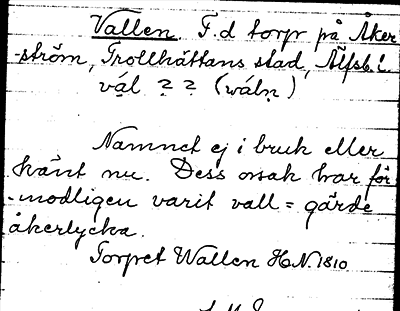 Vallen. F.d torp på Åker
-ström, Trollhättans stad, Älfsb. l.
vál ? ? (wáln)
Namnet ej i bruk eller
känt nu. Dess orsak har för
-modligen varit vall = gärde
åkerlycka.
Torpet Wallen H.N. 1810